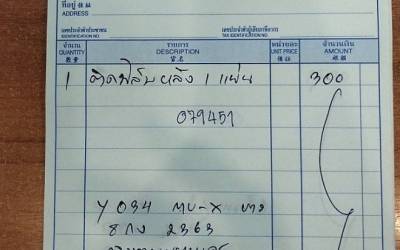 ที่อยู่ 住址
ADDRESS
เลขประจำตัวประชาชน เลขประจำตัวผู้เสียภาษีอากร
IDENTIFICATION NO. TAX IDENTIFICATION NO.
จำนวน รายการ หน่วยละ จำนวนเงิน
QUANTITY DESCRIPTION UNIT PRICE AMOUNT
數量 貨名 價錢 銀額
1 ติดฟิล์มหลัง 1 แผ่น 300
079451
7034 MU-X
8 กง 2363